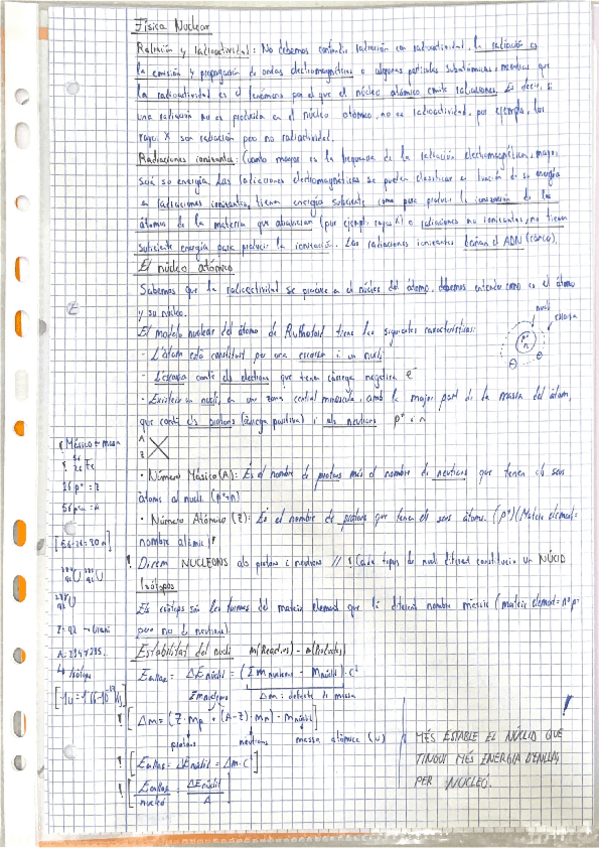 Física Nuclear
Radiación y radioactividad: No debemos confundir radiación con radioactividad, la radiación es
la emisión y propagación de ondas electromagnéticas o algunas partículas subatómicas, mientras que
la radioactividad es el fenómeno por el que el núcleo atómico emite radiaciones. Es decir, si
una radiación no es producida en el núcleo atómico, no es radioactividad, por ejemplo, los
rayos X son radiación pero no radiactividad.
Radiaciones ionizantes: Cuanto mayor es la frequencia de la radiación electromagnética, mayor
será su energía. Las radiaciones electromagnéticas se pueden classificar en función de su energía
en radiaciones ionizantes, tienen energía suficiente como para producir la ionización de los
átomos de la materia que atraviesan (por ejempl. rayos X) o radiaciones no ionizantes, no tienen
suficiente energía para producir la ionización. Las radiaciones ionizantes dañan el ADN (cáncer).
El núcleo atómico
Sabemos que la radioactividad se produce en el núcleo del átomo, debemos entender como es el átomo
y su núcleo.
nucli
escorça
p+
n
El modelo nuclear del átomo de Rutherford tiene las siguientes características:
- L'àtom està constituït per una escorça i un nucli
- L'escorça conté els electrons que tienen càrrega negativa e-
- Existeix un nucli, en una zona central minúscula, amb la major part de la massa del àtom,
que conté els protons (càrrega positiva) i els neutrons p+ i n
A
Z
X
• Número Másico (A): És el nombre de protons més el nombre de neutrons que tenen els seus
àtoms al nucli. (p+n)
• Número Atómico (Z): És el nombre de protons que tenen els seus àtoms. (p+) (Mateix element =
nombre atòmic)
! Direm NUCLEONS als protons i neutrons // ! Cada tipus de nucli diferent constitueix un NÚCLID
Isòtops
Els isòtops són les formes del mateix element que té diferent nombre màssic (mateix element = nº p+
pero no de neutrons)
Estabilitat del nucli m(Reactius) - m(Productes)
Eenllaç = ΔEnúclid = (Σmnucleons - Mnúclid) · c²
Σmnucleons
Δm: defecte de massa
! [Δm = (Z · mp + (A-Z) · mn) - mnúclid]
protons neutrons massa atòmica (u)
! [Eenllaç = ΔEnúclid = Δm · c²]
! [Eenllaç / nucleó = ΔEnúclid / A]
!
MÉS ESTABLE EL NÚCLID QUE
TINGUI MÉS ENERGIA D'ENLLAÇ
PER NUCLEÓ.
! Másico = masa
56
26 Fe
26 p+ = Z
[56-26 = 30 n]
234
92 U
235
92 U
Z = 92 → Urani
A = 234 y 235
↳ Isòtops